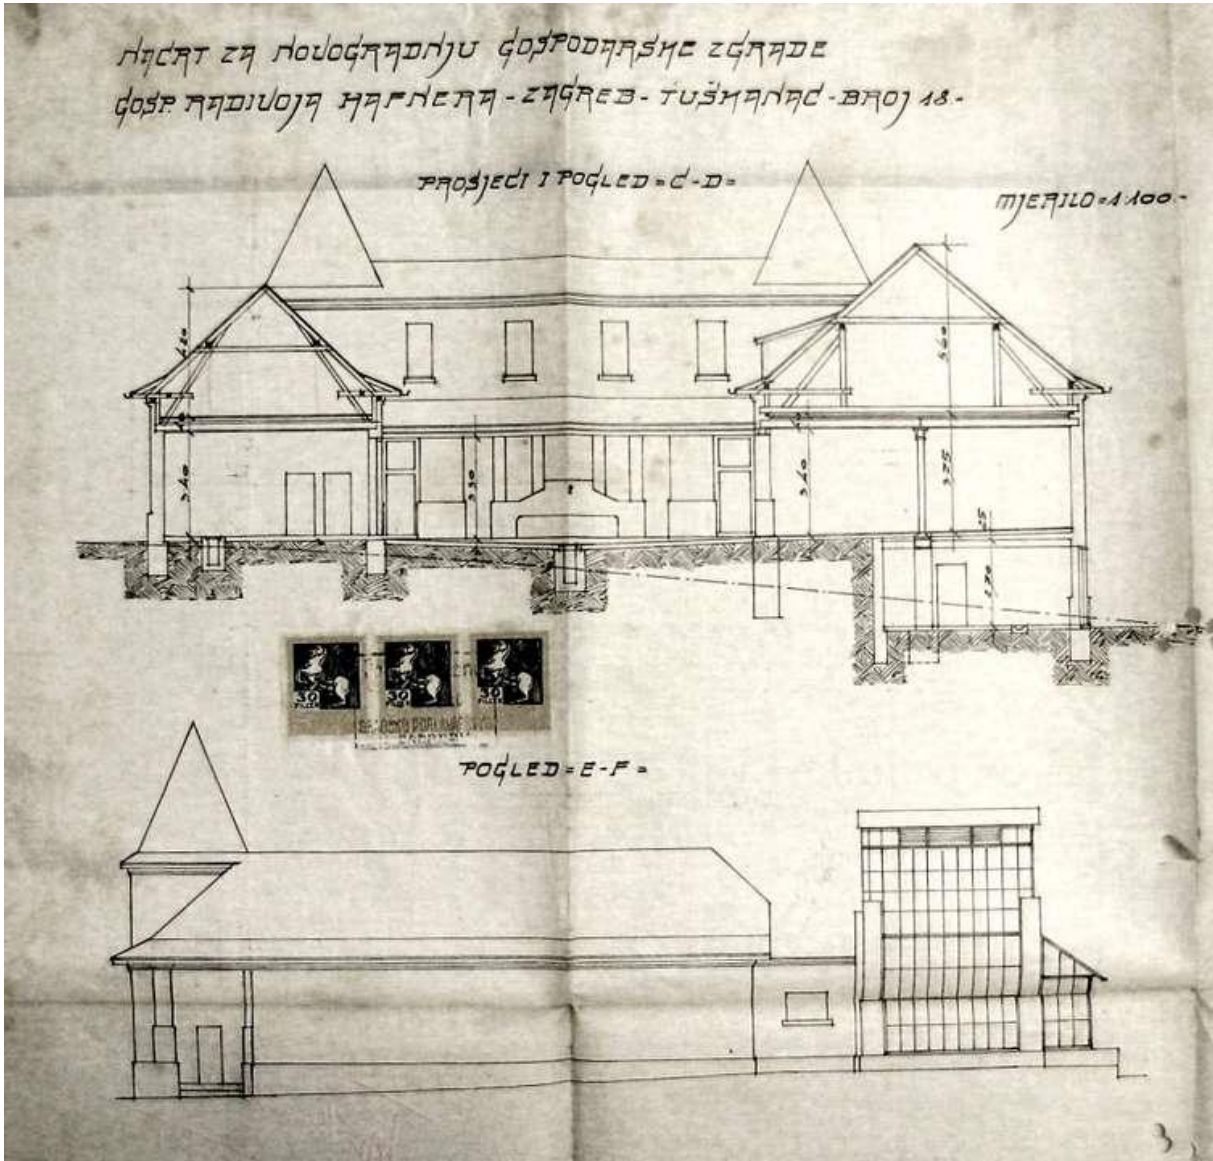 NACRT ZA NOVOGRADNJU GOSPODARSKE ZGRADE
GOSP. RADIVOJA HAFNERA - ZAGREB - TUŠKANAC - BROJ 18.-
PROSJECI I POGLED = C-D =
MJERILO = 1:100.-
4.20
5.60
3.40
3.30
3.40
3.75
25
2.70
30
30
30
POGLED = E-F =
3